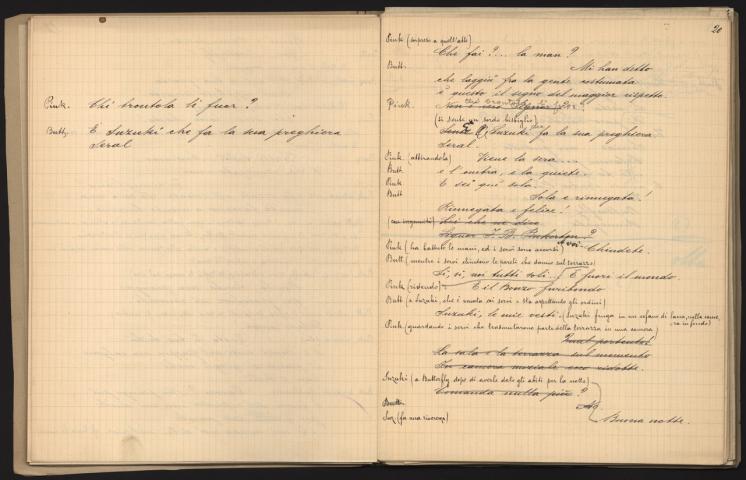 Pink. Chi brontola lì fuor?
Butt. È Suzuki che fa la sua preghiera
Seral
20
Pink (sorpreso a quell'atto)
Che fai?... la man?
Butt. Mi han detto
che laggiù fra la gente costumata
è questo il segno del maggior rispetto.
Pink.
(si sente un sordo bisbiglio)
È Suzuki fa la sua preghiera
Seral.
Pink (attirandola) Viene la sera....
Butt e l'ombra, e la quiete.
Pink E sei qui sola.
Butt Sola e rinnegata!
Rinnegata e felice!
(con ingenuità) Lui che ne dice
Signor F. B. Pinkerton?
Pink (ha battuto le mani, ed i servi sono accorsi) A voi Chiudete.
Butt (mentre i servi chiudono le pareti che danno sul terrazzo)
Sì, sì, noi tutti soli.. E fuori il mondo.
Pink (ridendo) E il Bonzo furibondo
Butt (a Suzuki, che è venuta coi servi e sta aspettando gli ordini)
Suzuki, le mie vesti - (Suzuki fruga in un cofano di lacca, nella camera,
in fondo)
Pink (guardando i servi che trasmutarono parte della terrazza in una camera)
Quai portenti!
La sala e la terrazza sul momento
In camera nuziale son ridotte.
Suzuki (a Butterfly dopo di averle dato gli abiti per la notte)
Comanda nulla più?
Butt No
Suz (fa una riverenza) Buona notte.